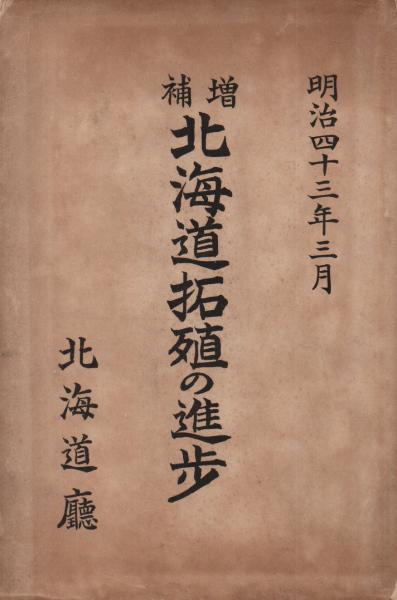 明治四十三年三月
増補
北海道拓殖の進歩
北海道廳